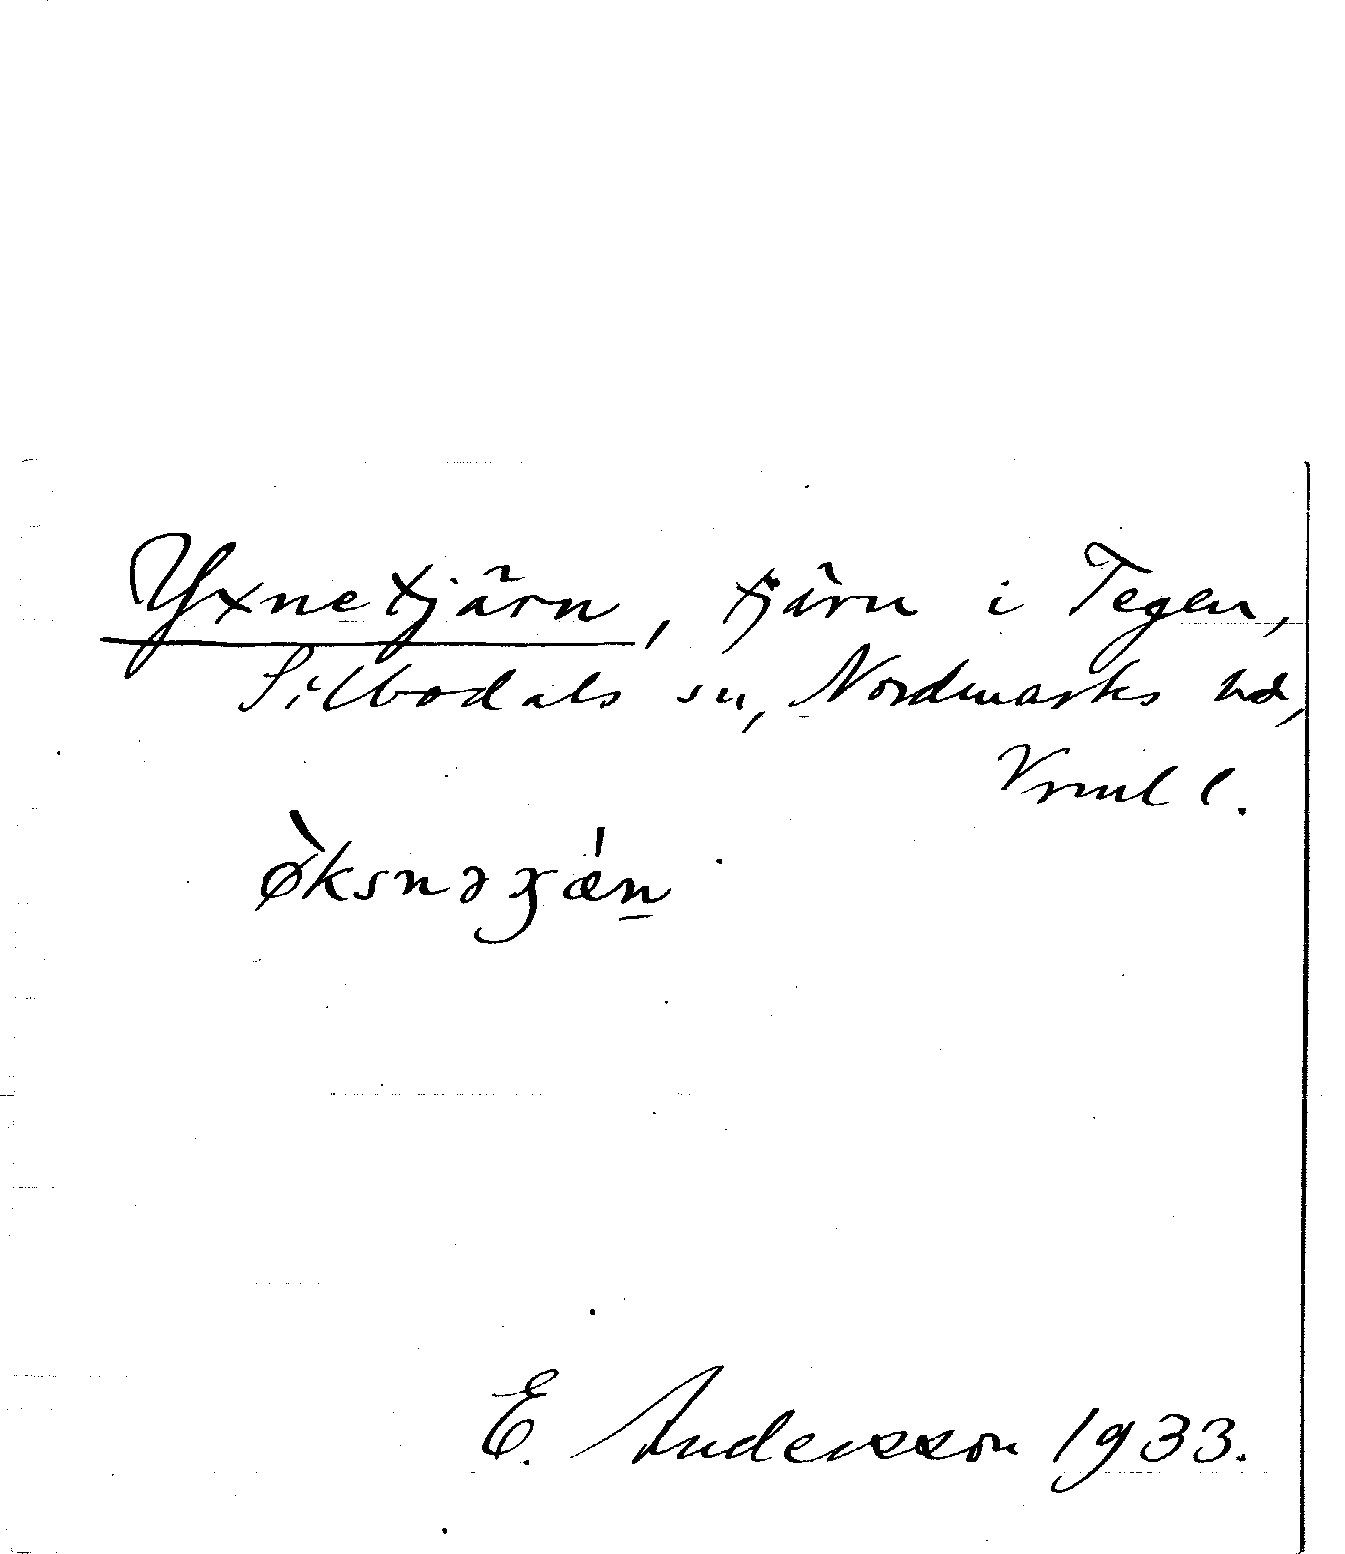 Yxnetjärn, tjärn i Tegen,
Silbodals sn, Nordmarks hd,
Vrml l.
ø̀ksnəʓǽn̲
E. Andersson 1933.